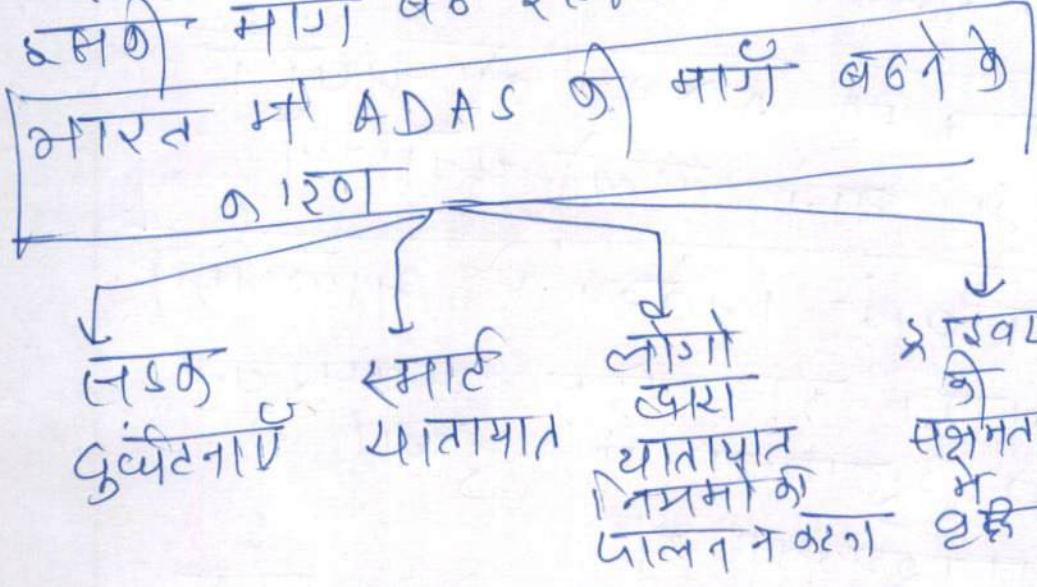 इसकी मांग बढ
भारत में ADAS की मांग बढने के
कारण
सडक
दुर्घटनाएँ
स्मार्ट
यातायात
लोगो
द्वारा
यातायात
नियमो का
पालन न करना
ड्राइवर
की
सक्षमता
में
वृद्धि